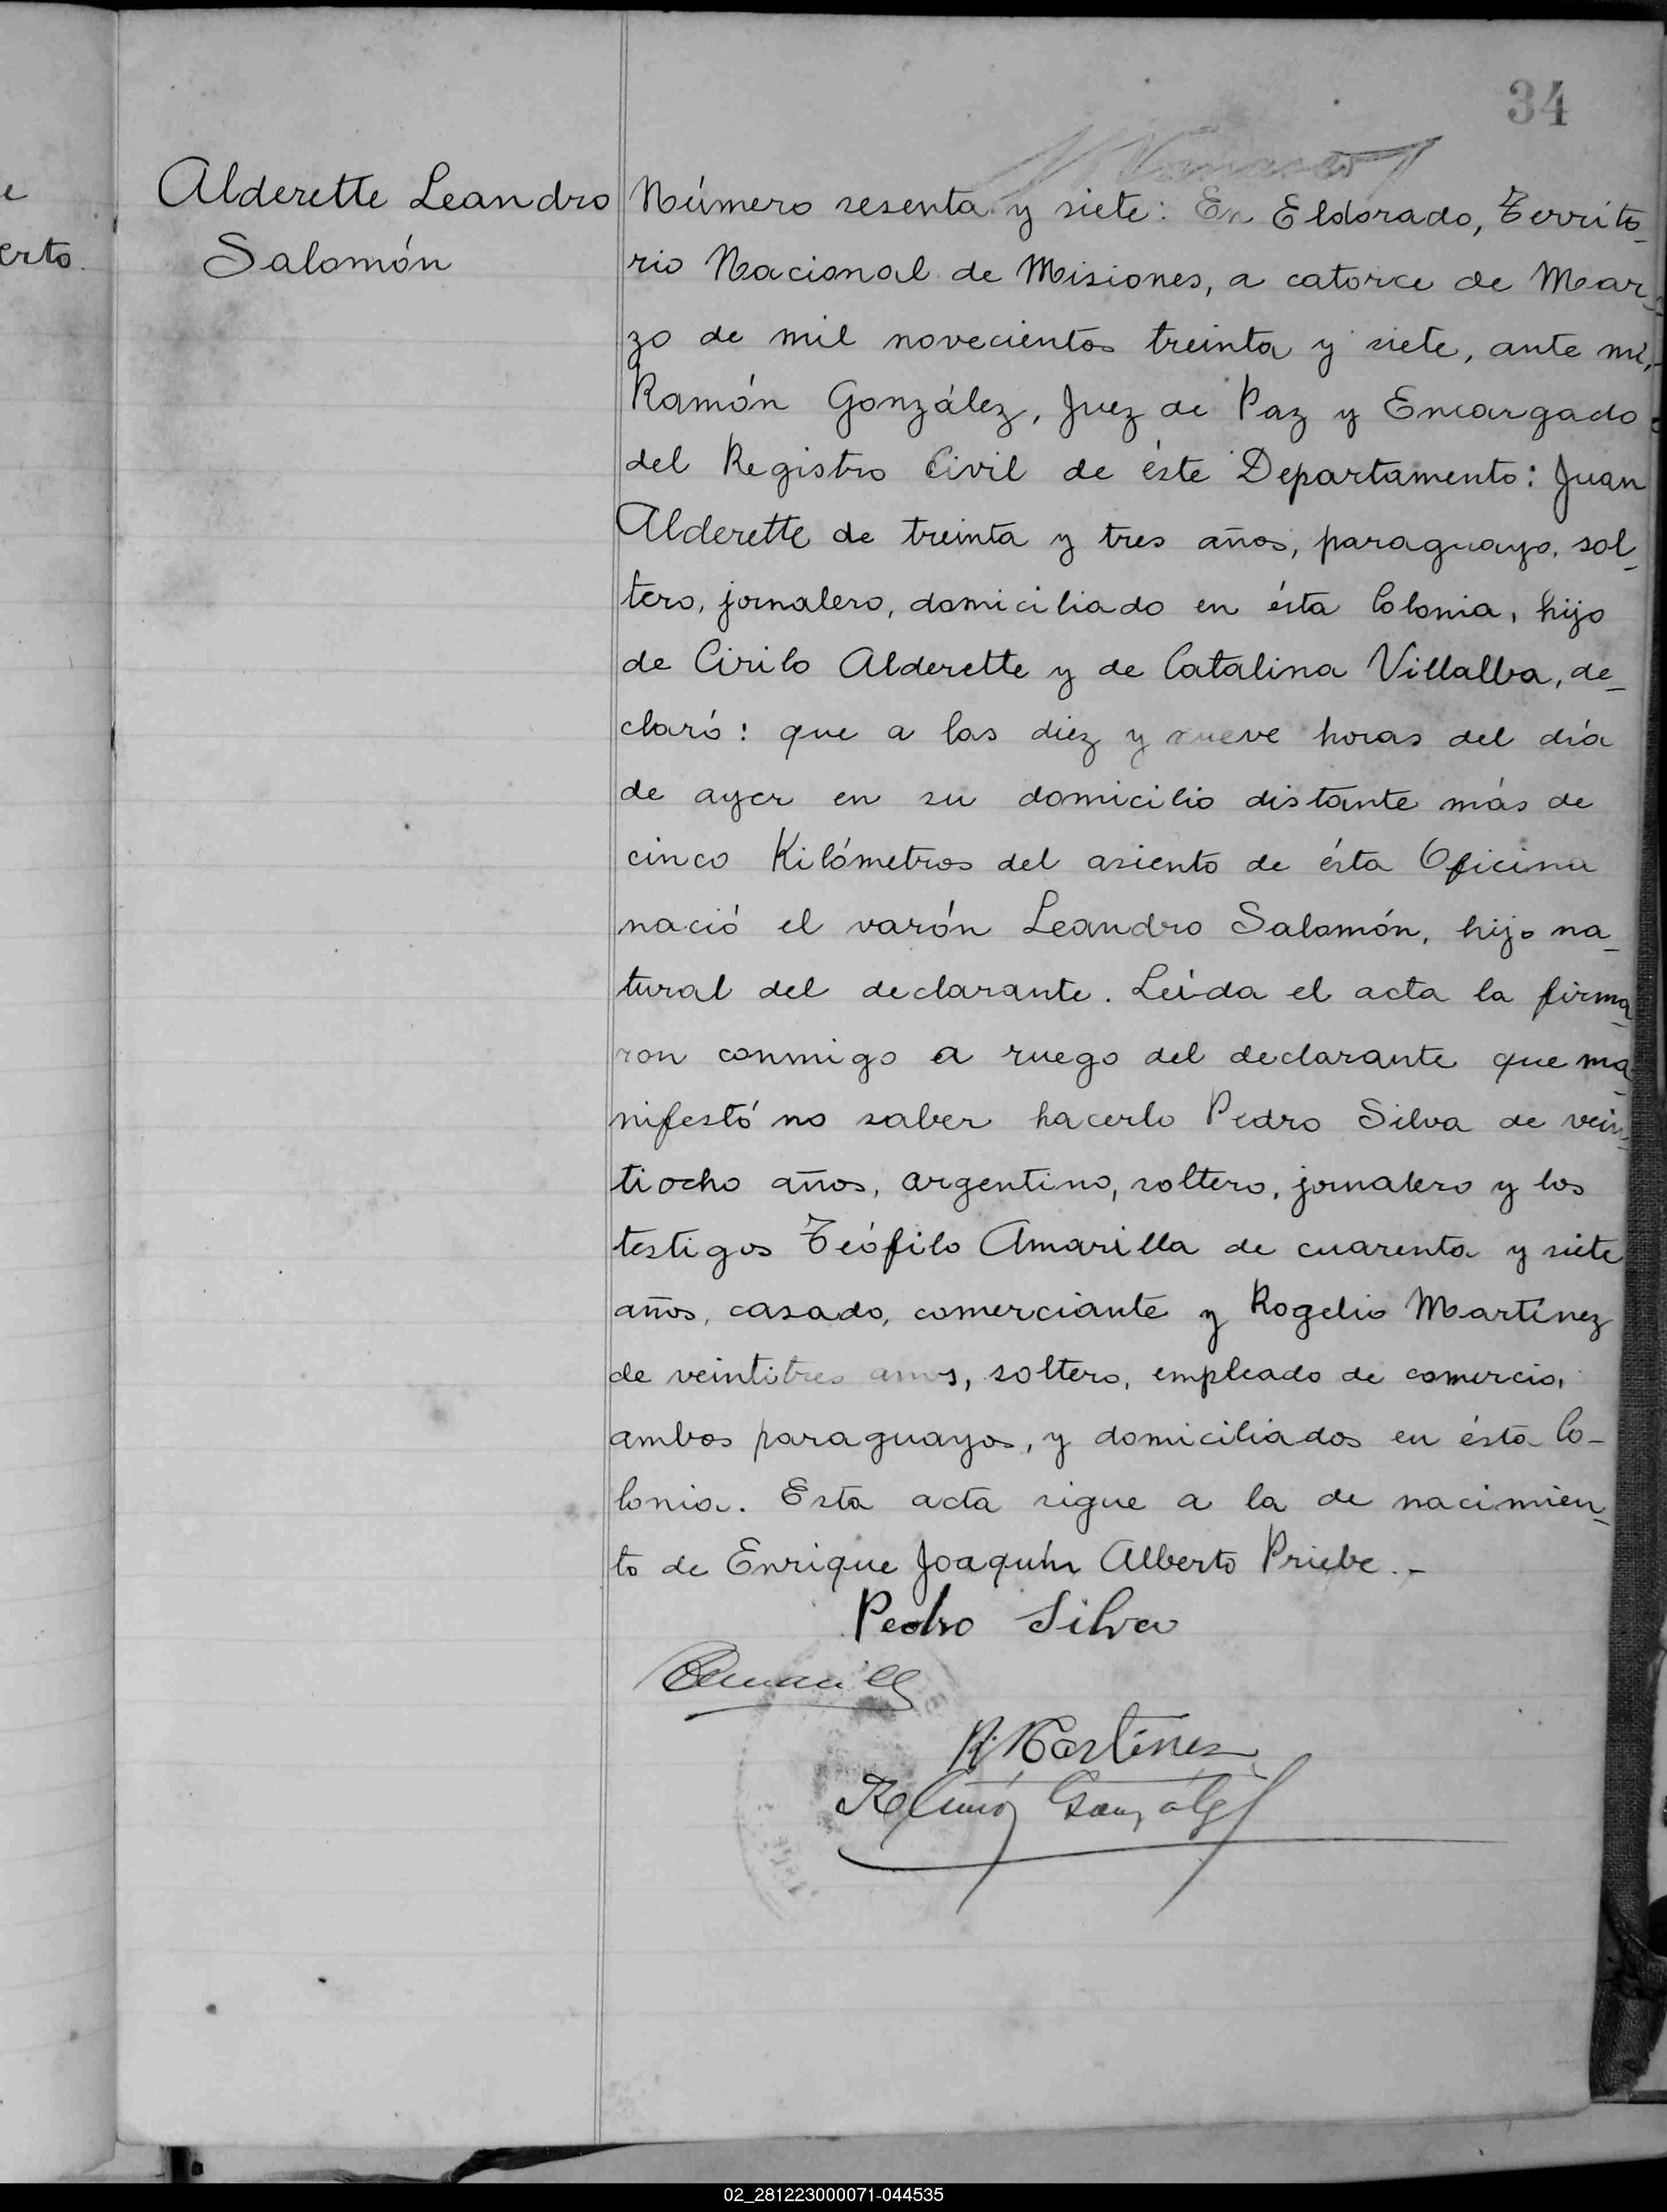 34
e
erto.
Alderette Leandro
Salomón
Número sesenta y siete: En Eldorado, Territo-
rio Nacional de Misiones, a catorce de Mar-
zo de mil novecientos treinta y siete, ante mí,
Ramón González, Juez de Paz y Encargado
del Registro Civil de éste Departamento: Juan
Alderette de treinta y tres años, paraguayo, sol-
tero, jornalero, domiciliado en ésta Colonia, hijo
de Cirilo Alderette y de Catalina Villalba, de-
claró: que a las diez y nueve horas del día
de ayer en su domicilio distante más de
cinco Kilómetros del asiento de ésta Oficina
nació el varón Leandro Salomón, hijo na-
tural del declarante. Leída el acta la firma-
ron conmigo a ruego del declarante que ma-
nifestó no saber hacerlo Pedro Silva de vein-
tiocho años, argentino, soltero, jornalero y los
testigos Teófilo Amarilla de cuarenta y siete
años, casado, comerciante y Rogelio Martínez
de veintitres años, soltero, empleado de comercio,
ambos paraguayos, y domiciliados en ésta Co-
lonia. Esta acta sigue a la de nacimien-
to de Enrique Joaquín Alberto Priebe.-
Pedro Silva
R. Martínez
Ramón González
02_281223000071-044535